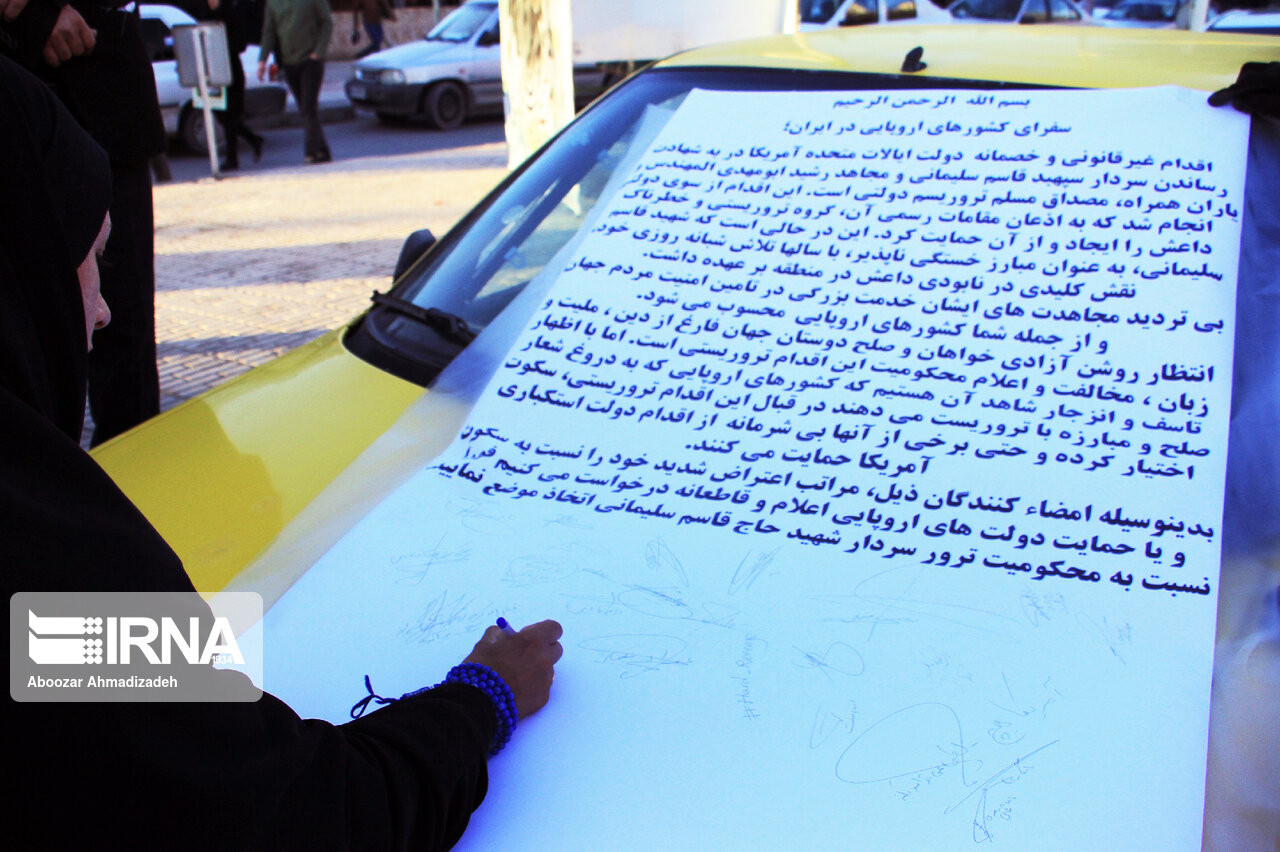 بسم الله الرحمن الرحیم
سفرای کشورهای اروپایی در ایران؛
اقدام غیرقانونی و خصمانه دولت ایالات متحده آمریکا در به شهادت
رساندن سردار سپهبد قاسم سلیمانی و مجاهد رشید ابومهدی المهندس و
یاران همراه، مصداق مسلم تروریسم دولتی است. این اقدام از سوی دولتی
انجام شد که به اذعان مقامات رسمی آن، گروه تروریستی و خطرناک
داعش را ایجاد و از آن حمایت کرد. این در حالی است که شهید قاسم
سلیمانی، به عنوان مبارز خستگی ناپذیر، با سالها تلاش شبانه روزی خود،
نقش کلیدی در نابودی داعش در منطقه بر عهده داشت.
بی تردید مجاهدت های ایشان خدمت بزرگی در تامین امنیت مردم جهان
و از جمله شما کشورهای اروپایی محسوب می شود.
انتظار روشن آزادی خواهان و صلح دوستان جهان فارغ از دین، ملیت و
زبان، مخالفت و اعلام محکومیت این اقدام تروریستی است. اما با اظهار
تاسف و انزجار شاهد آن هستیم که کشورهای اروپایی که به دروغ شعار
صلح و مبارزه با تروریست می دهند در قبال این اقدام تروریستی، سکوت
اختیار کرده و حتی برخی از آنها بی شرمانه از اقدام دولت استکباری
آمریکا حمایت می کنند.
بدینوسیله امضاء کنندگان ذیل، مراتب اعتراض شدید خود را نسبت به سکوت
و یا حمایت دولت های اروپایی اعلام و قاطعانه درخواست می کنیم
نسبت به محکومیت ترور سردار شهید حاج قاسم سلیمانی اتخاذ موضع نمایید
IRNA
1934
Aboozar Ahmadizadeh